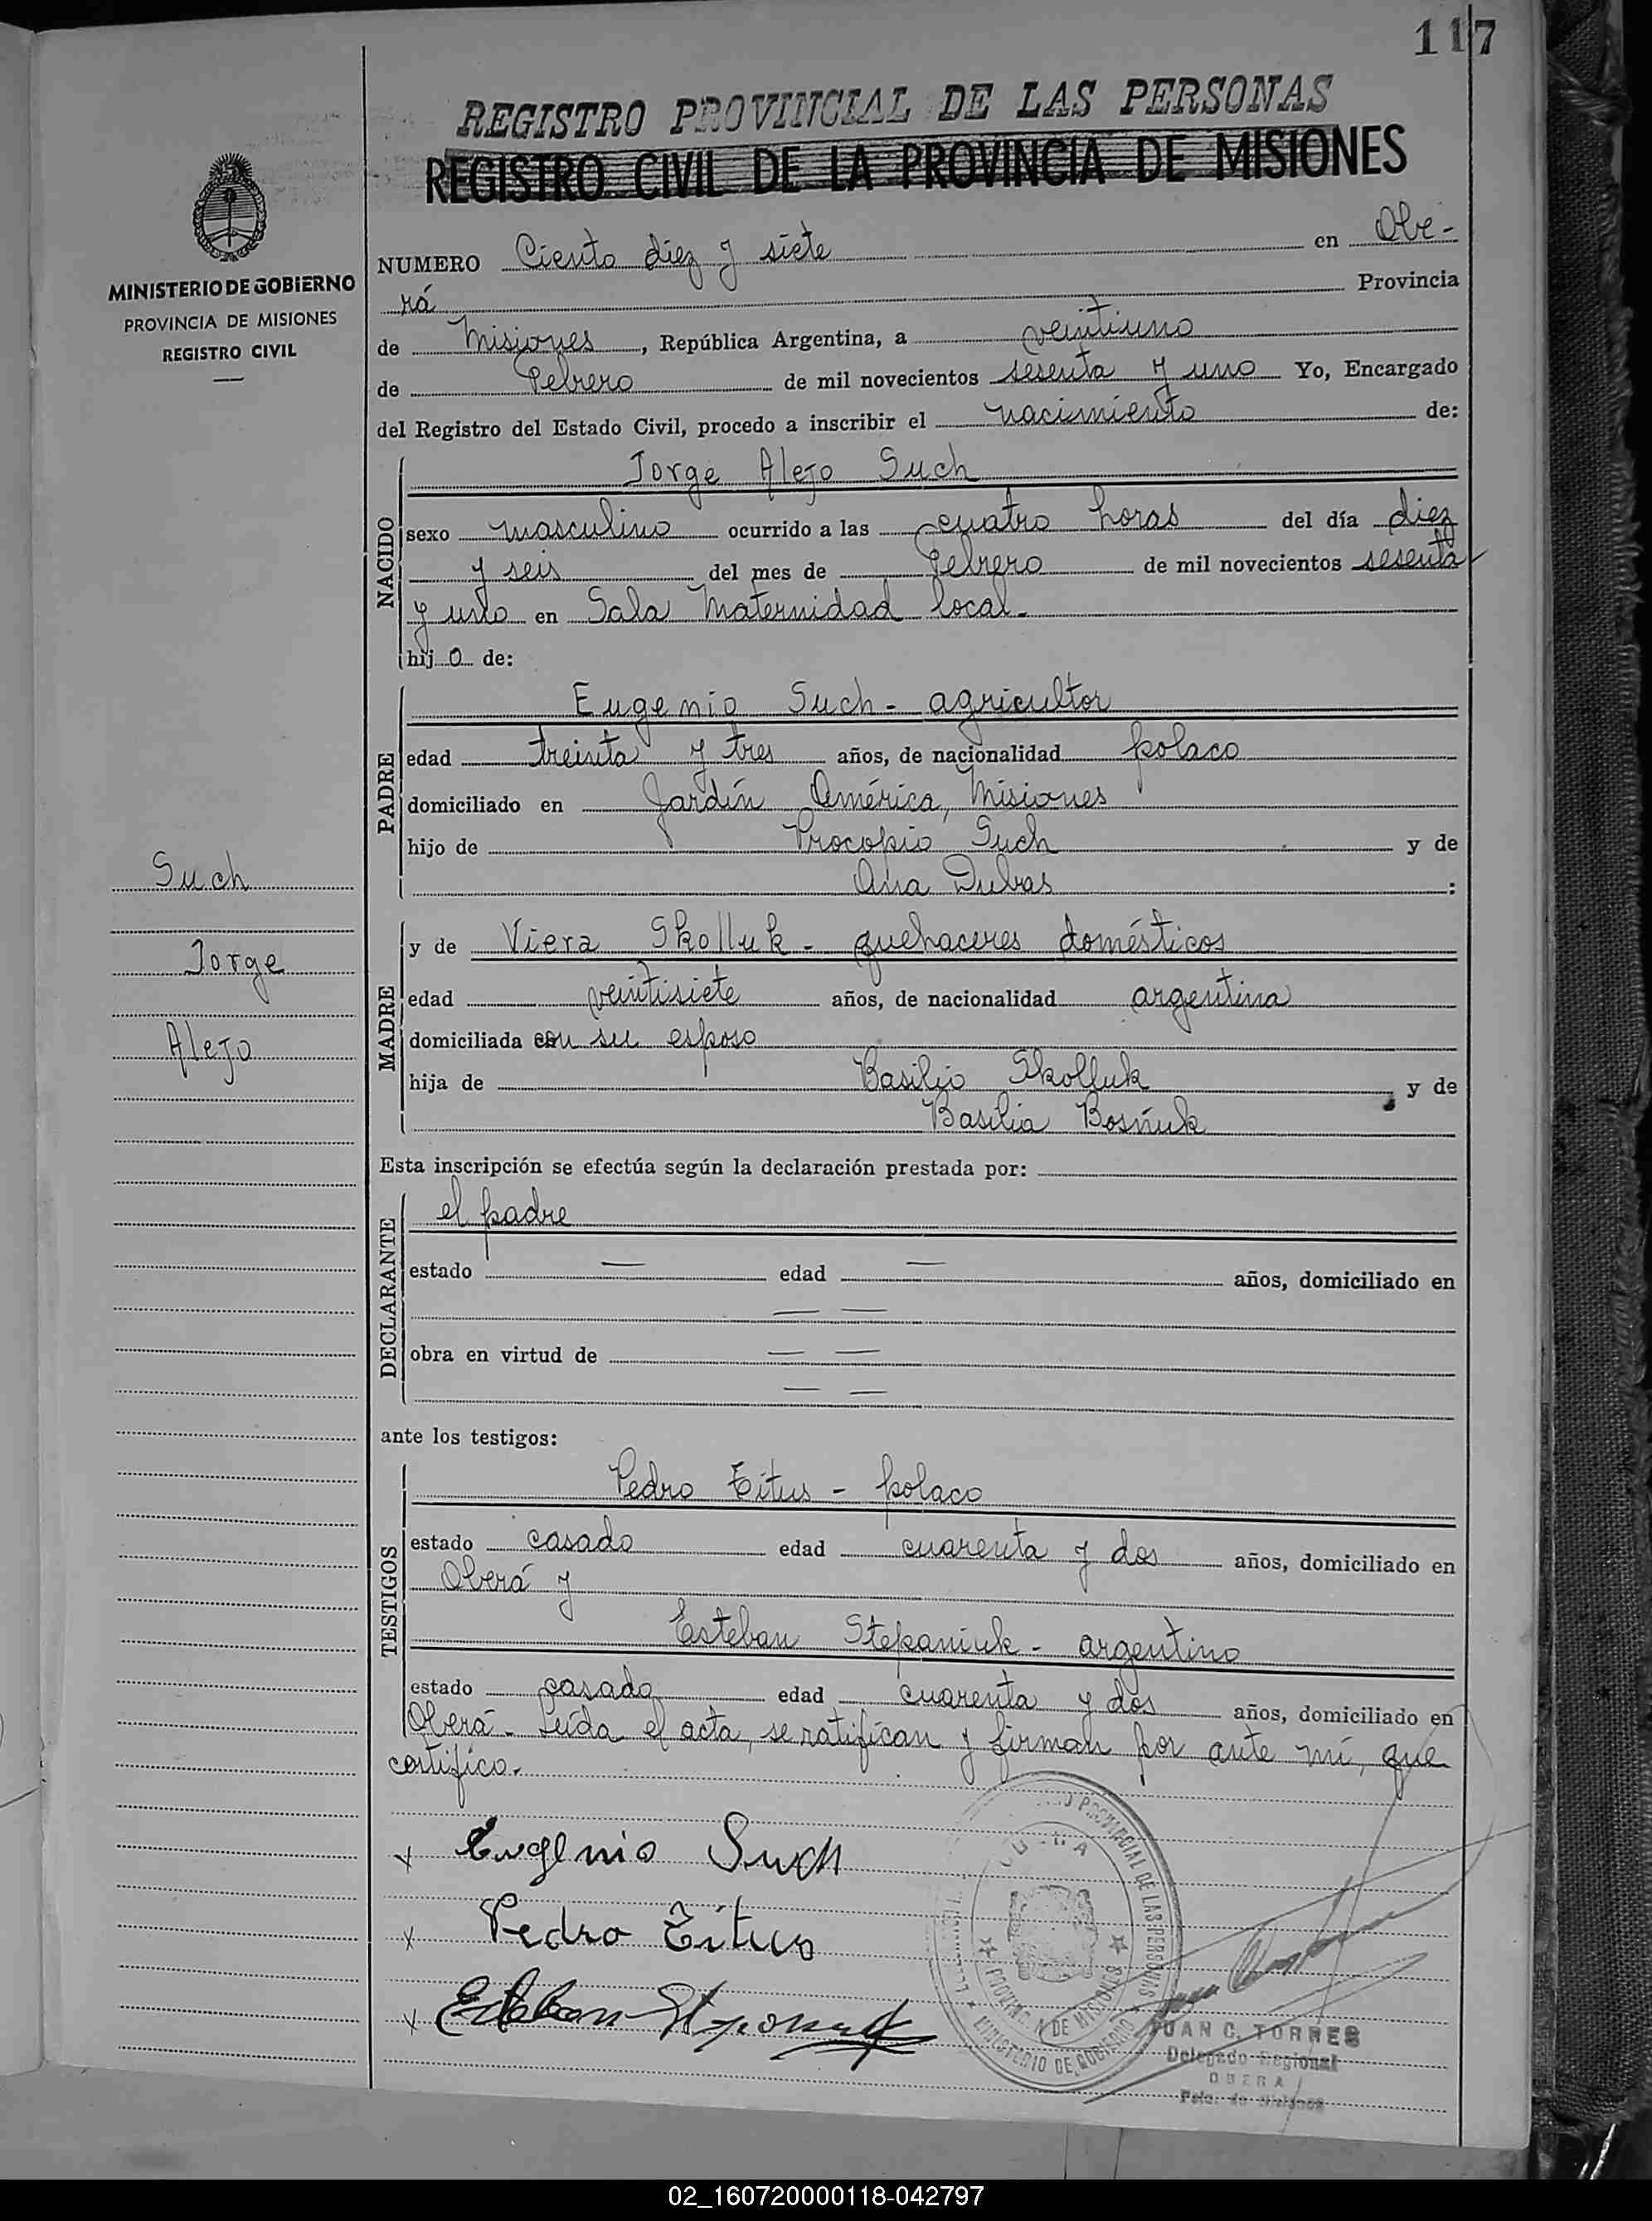 117
REGISTRO PROVINCIAL DE LAS PERSONAS
REGISTRO CIVIL DE LA PROVINCIA DE MISIONES
MINISTERIO DE GOBIERNO
PROVINCIA DE MISIONES
REGISTRO CIVIL
NUMERO Ciento diez y siete en Obe-
rá Provincia
de Misiones, República Argentina, a veintiuno
de Febrero de mil novecientos sesenta y uno Yo, Encargado
del Registro del Estado Civil, procedo a inscribir el nacimiento de:
NACIDO
Jorge Alejo Such
sexo masculino ocurrido a las cuatro horas del día diez
y seis del mes de Febrero de mil novecientos sesenta
y uno en Sala Maternidad local.
hijo de:
PADRE
Eugenio Such - agricultor
edad treinta y tres años, de nacionalidad polaco
domiciliado en Jardín América, Misiones
hijo de Procopio Such y de
Ana Dubas:
MADRE
y de Viera Skolluk - quehaceres domésticos
edad veintisiete años, de nacionalidad argentina
domiciliada con su esposo
hija de Basilio Skolluk, y de
Basilia Bosñuk
Such
Jorge
Alejo
Esta inscripción se efectúa según la declaración prestada por:
DECLARANTE
el padre
estado — edad — años, domiciliado en
— —
obra en virtud de — —
— —
ante los testigos:
TESTIGOS
Pedro Eitus - polaco
estado casado edad cuarenta y dos años, domiciliado en
Oberá y
Esteban Stepaniuk - argentino
estado casado edad cuarenta y dos años, domiciliado en
Oberá - Leída el acta, se ratifican y firman por ante mí, que
certifico.
x Eugenio Such
x Pedro Eitus
x Esteban Stepaniuk
PROVINCIAL DE LAS PERSONAS
PROVINCIA DE MISIONES
MINISTERIO DE GOBIERNO
JUAN C. TORRES
Delegado Regional
OBERA
Pcia. de Misiones
02_160720000118-042797